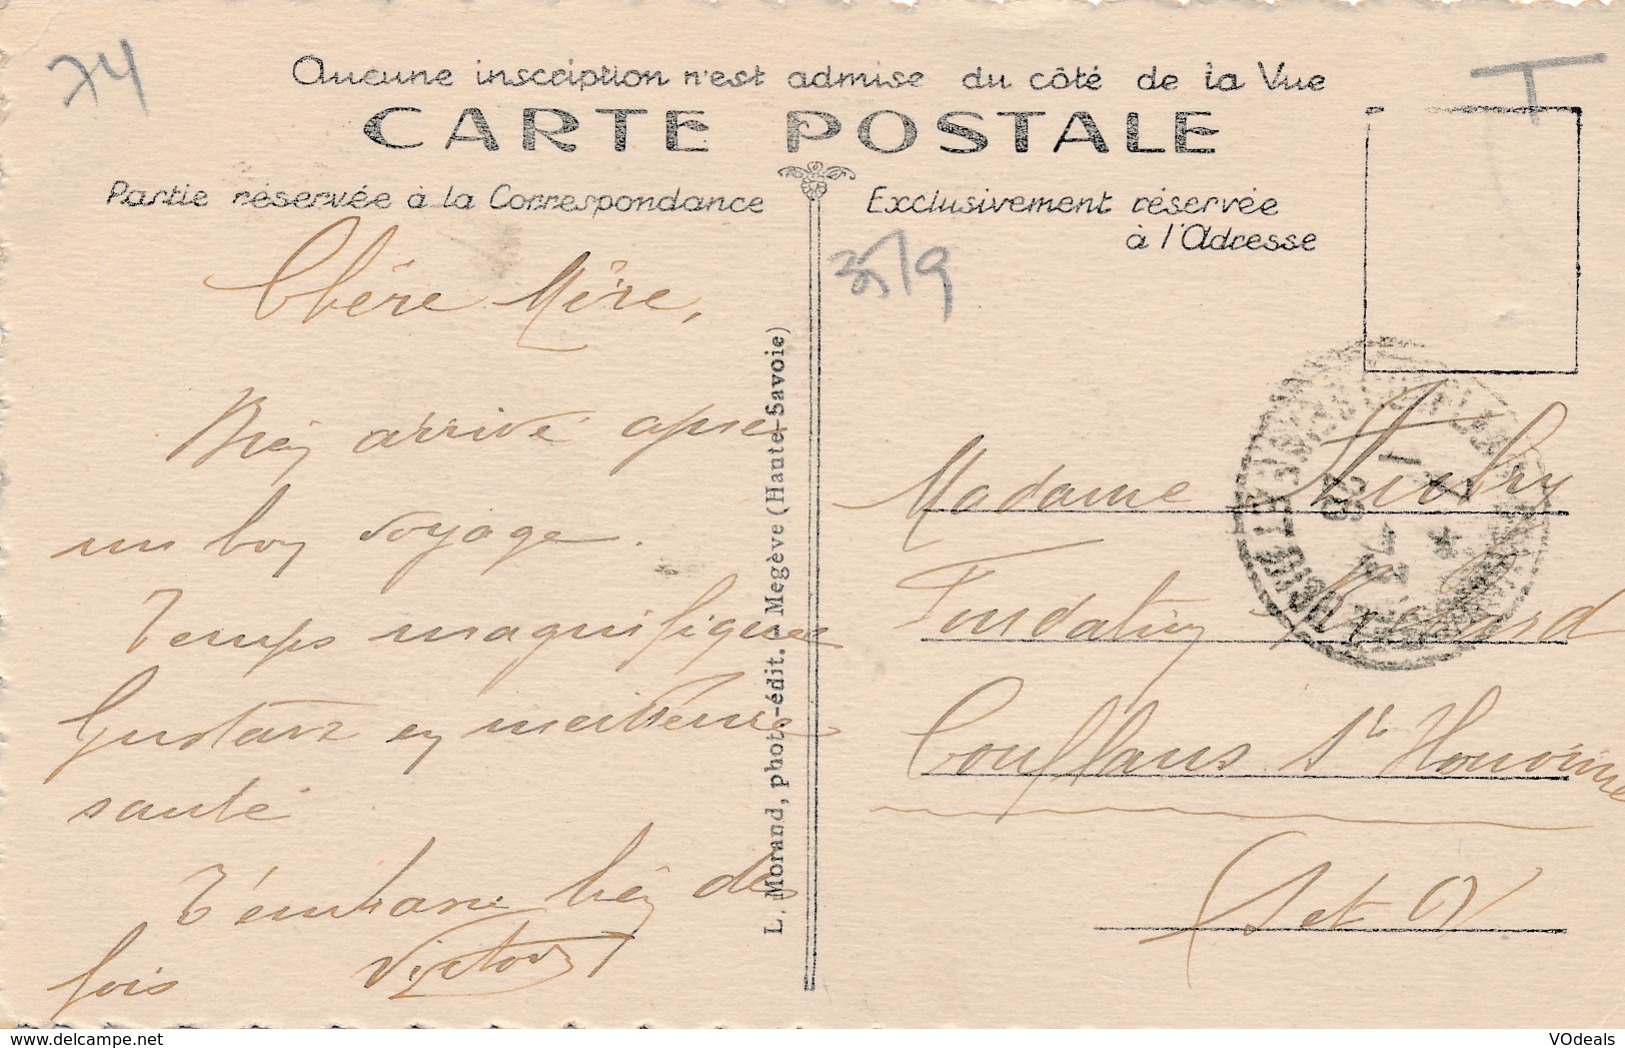 74
T
Aucune inscription n'est admise du côté de la Vue
CARTE POSTALE
Partie réservée à la Correspondance
Exclusivement réservée
à l'Adresse
35/9
Chère Mère,
Bien arrivé apres
un bon voyage.
Temps magnifiques
Gustave en meilleure
santé
T'embrasse bien des
fois Victor
L. Morand, phot.-édit. - Megève (Haute-Savoie)
Madame
Fondation
Conflans Ste Honorine
Set O
SEINE ET OISE
VOdeals